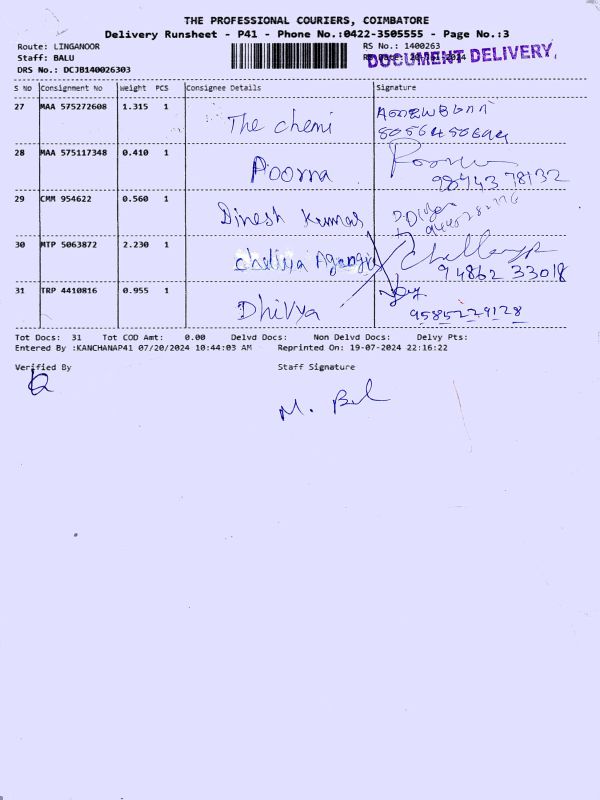 THE PROFESSIONAL COURIERS, COIMBATORE
Delivery Runsheet - P41 - Phone No.:0422-3505555 - Page No.:3
Route: LINGANOOR RS No.: 1400263
Staff: BALU DOCUMENT DELIVERY
DRS No.: DCJB140026303
S No Consignment No Weight PCS Consignee Details Signature
27 MAA 575272608 1.315 1 The chemi
28 MAA 575117348 0.410 1 Poorna 98743 78132
29 CMM 954622 0.560 1 Dinesh Kumar
30 MTP 5063872 2.230 1 94862 33018
31 TRP 4410816 0.955 1 Dhivya 9585229128
Tot Docs: 31 Tot COD Amt: 0.00 Delvd Docs: Non Delvd Docs: Delvy Pts:
Entered By :KANCHANAP41 07/20/2024 10:44:03 AM Reprinted On: 19-07-2024 22:16:22
Verified By Staff Signature